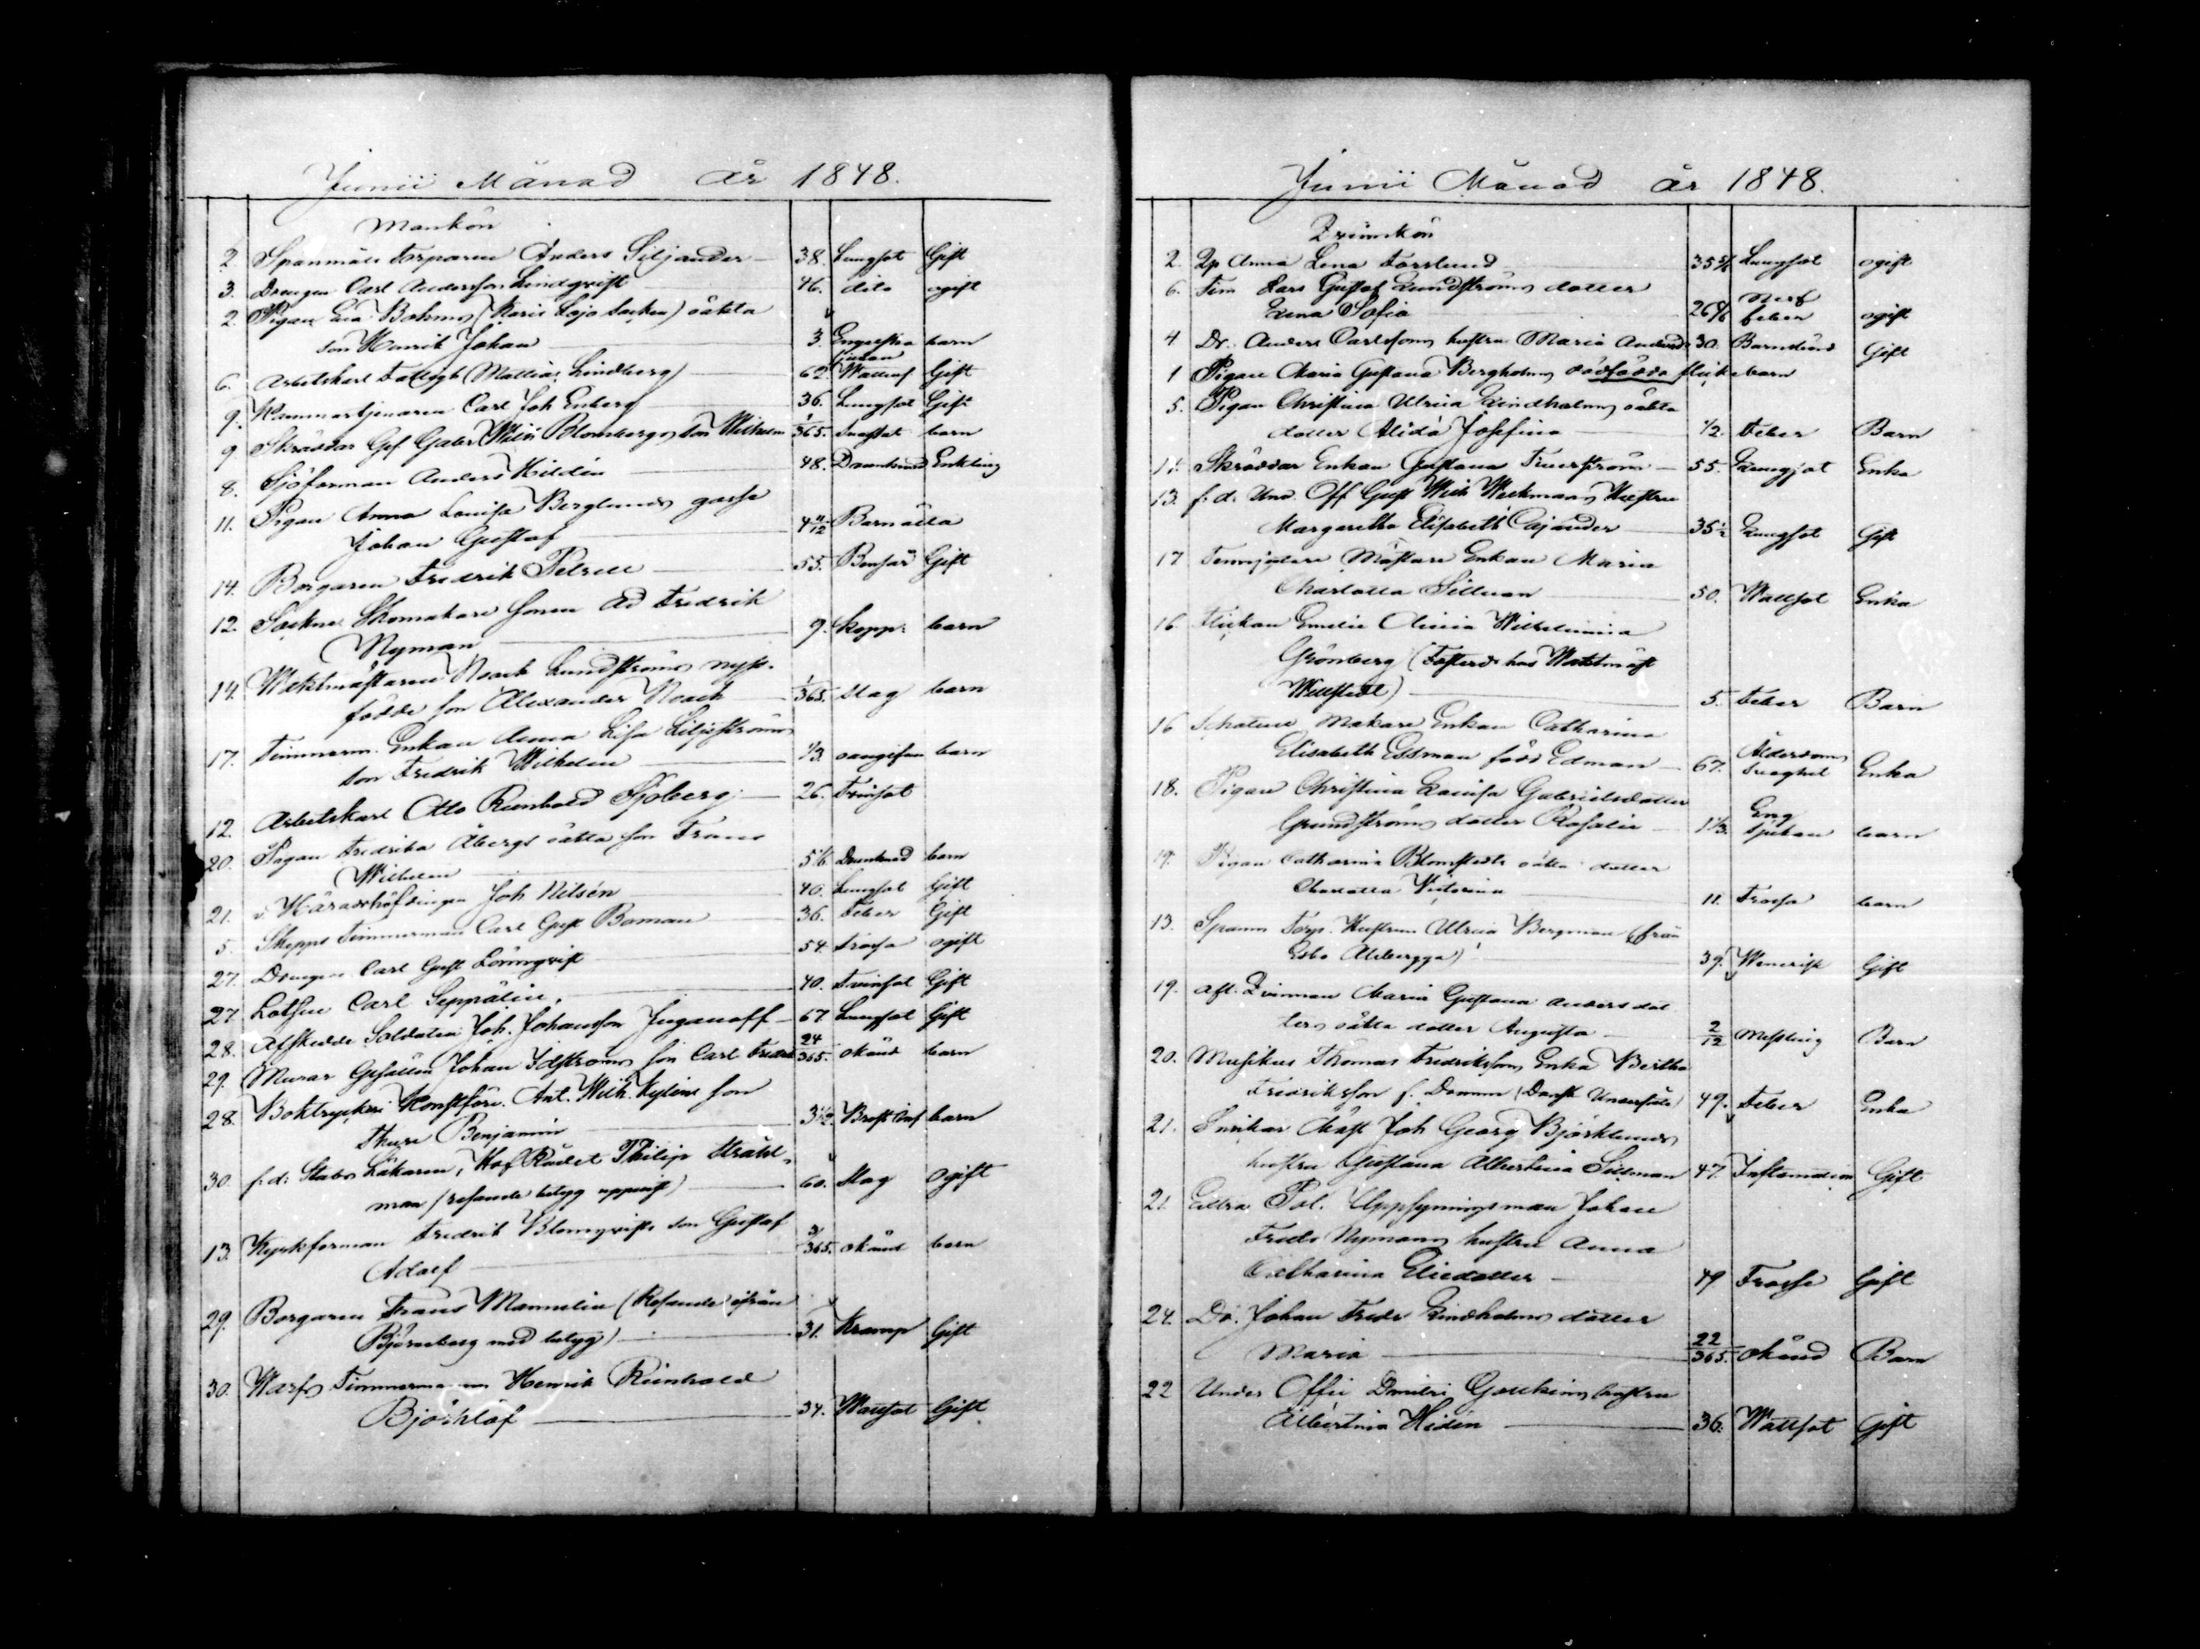 Junii Månad år 1848.
Mankön
2. Spanmåls Torparen Anders Siljander 38. Lungsot Gift
3. Drengen Carl Andersson Lindqvist 46. dito ogift
2. Pigan Eva Bohms (Karis Lojo Socken) oäkta
son Henrik Johan 3. Engelska sjukan barn
6. Arbetskarl Fattigh. (Mattias Lindberg) 62 Wattus Gift
9. Kammartjenaren Carl Joh Enberg 36. Lungsot Gift
9. Skräddar Ges Gabr Wilh Blombergs son Wilhelm 1/365. barn
8. Sjöforman Anders Kildin 48. Drunknad Enkling
11. Pigan Anna Lovisa Berglunds gosse
Johan Gustaf 4 11/12 Barn oäkta
14. Borgaren Fredrik Petrell 55. Bensår Gift
12. Socken Skomakare sonen Ad Fredrik
Nyman 9. Kopp: barn
14. Waktmästaren Noack Lundströms nyss-
födde son Alexander Noach 1/365. slag barn
17. Timmerm. Enkan Anna Lisa Liljeströms
son Fredrik Wilhelm 1/3. oangifven barn
12. Arbetskarl Otto Reinhold Sjöberg 26. Tvinsot
20. Pigan Fredrika Åbergs oäkta son Frans
Wilhelm 5 1/6 Drunknad barn
21. v. Häradshöfdingen Joh Nilsén 40. Lungsot Gift
5. Skepps Timmerman Carl Gust Boman 36. Feber Gift
27. Drengen Carl Gust Lönnqvist 54. Frossa ogift
27 Lotsen Carl Seppälin. 40. Tvinsot Gift
28. Afskedde Soldaten Joh. Johansson Juganoff 67 Lungsot Gift
29. Murar Gesällen Johan Idströms son Carl Fredrik 24/365. okänd barn
28. Boktryckeri Konstför. Ant. Wilh. Kyléns son
Thure Benjamin 3 1/2. Bröst Inf barn
30. f.d. Stabs Läkaren, Hof Rådet Philip Stråhl-
man (resande betyg uppvist) 60. Slag Ogift
13. Kyrkforman Fredrik Blomqvists son Gustaf
Adolf 3/365. okänd barn
29. Borgaren Frans Mannelin (Resande ifrån
Björneborg med betyg) 31. Kramp Gift
30. Warfs Timmerman Henrik Reinhold
Björklöf 34. Wattsot Gift
Junii Månad år 1848.
Qvinnkön
2. Qp Anna Lena Forslund 35 5/6 Lungsot ogift
6. Tim Lars Gustaf Lundströms dotter
Lena Sofia 26 4/6 Nerf feber ogift
4 Dr. Anders Carlssons hustru Maria Andersd. 30. Barnsäng Gift
1 Pigan Maria Gustava Bergholms dödfödda flicke barn
5. Pigan Christina Ulrica Lindholms oäkta
dotter Alida Josefina 1/2. Feber Barn
11. Skräddar Enkan Gustava Tuerström 55. Lungsot Enka
13. f.d. Und. Off Gust Wilh Weckmans Hustru
Margaretha Elisabeth Cajander 35 1/2 Lungsot Gift
17 Tenngjutare Mästare Enkan Maria
Charlotta Sillman 50. Wattsot Enka
16 Flickan Emelie Olivia Wilhelmina
Grönberg (Fosterd. hos Waktmäst
Wellstedt) 5. Feber Barn
16 Schatull Makare Enkan Catharina
Elisabeth Edsman född Edman 67. Ålderdoms Svaghet Enka
18. Pigan Christina Lovisa Gabrielsdotter
Grundströms dotter Rosalie 1 1/3. Eng sjukan barn
19. Pigan Catharina Blomstedts oäkta dotter
Charlotta Victorina 11. Frossa barn
13. Spanm Torp. Hustrun Ulrica Bergman (från
Esbo Alberga) 39. Wenerisk Gift
19. Afl. Qvinnan Maria Gustava Andersdot
ters oäkta dotter Augusta 2/12 Messling Barn
20. Musikus Thomas Fredrikssons Enka Bertha
Fredriksson f. Damm (Dansk Undersåte) 49. Feber Enka
21. Snickar Mäst Joh Georg Björklunds
hustru Gustava Albertina Sillman 47. Inflammation Gift
21. Extra Pol. Uppsyningsman Johan
Fredr Nymans hustru Anna
Catharina Eliedotter 49 Frossa Gift
24. Do. Johan Fredr Lindholms dotter
Maria 22/365. okänd Barn
22 Under Offic Dmitri Gouchins hustru
Albertina Hidén 36. Wattsot Gift